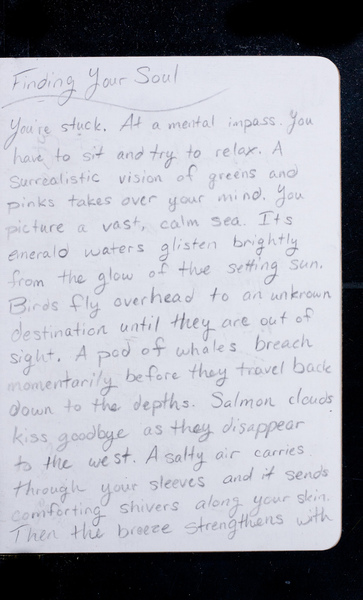 Finding Your Soul
You're stuck. At a mental impass. You
have to sit and try to relax. A
surrealistic vision of greens and
pinks takes over your mind. You
picture a vast, calm sea. Its
emerald waters glisten brightly
from the glow of the setting sun.
Birds fly overhead to an unkrown
destination until they are out of
sight. A pod of whales breach
momentarily before they travel back
down to the depths. Salmon clouds
kiss goodbye as they disappear
to the west. A salty air carries
through your sleeves and it sends
comforting shivers along your skin.
Then the breeze strengthens with